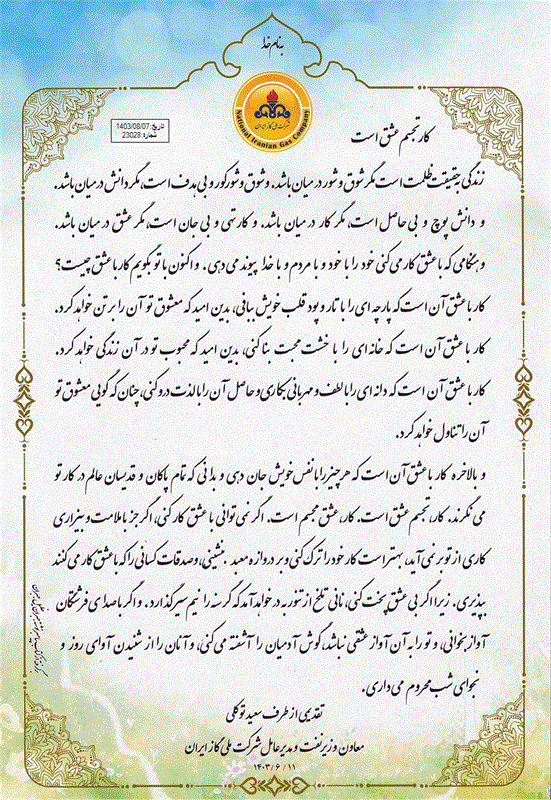 به نام خدا
National Iranian Gas Company
شرکت ملی گاز ایران
تاریخ: 1403/08/07
شماره: 23028
کار تجسم عشق است
زندگی به حقیقت ظلمت است مگر شوق و شور در میان باشد. و شوق و شور کور و بی هدف است، مگر دانش در میان باشد.
و دانش پوچ و بی حاصل است، مگر کار در میان باشد. و کار تهی و بی جان است، مگر عشق در میان باشد.
و هنگامی که با عشق کار می کنی خود را با خود و با مردم و با خدا پیوند می دهی. و اکنون با تو بگویم کار با عشق چیست؟
کار با عشق آن است که پارچه ای را با تار و پود قلب خویش ببافی، بدین امید که معشوق تو آن را بر تن خواهد کرد.
کار با عشق آن است که خانه ای را با خشت محبت بنا کنی، بدین امید که محبوب تو در آن زندگی خواهد کرد.
کار با عشق آن است که دانه ای را با لطف و مهربانی بکاری و حاصل آن را با لذت درو کنی، چنان که گویی معشوق تو
آن را تناول خواهد کرد.
و بالاخره کار با عشق آن است که هر چیز را با نفس خویش جان دهی و بدانی که تمام پاکان و قدیسان عالم در کار تو
می نگرند. کار، تجسم عشق است. کار، عشق مجسم است. اگر نمی توانی با عشق کار کنی، اگر جز با ملامت و بیزاری
کاری از تو بر نمی آید، بهتر است کار خود را ترک کنی و بر دروازه معبد بنشینی، و صدقات کسانی را که با عشق کار می کنند
بپذیری. زیرا اگر بی عشق پخت کنی، نانی تلخ از تنور به در خواهد آمد که گرسنه را نیم سیر گذارد. و اگر با صدای فرشتگان
آواز بخوانی، و تو را به آن آواز عشقی نباشد، گوش آدمیان را آشفته می کنی، و آنان را از شنیدن آوای روز و
نجوای شب محروم می داری.
تقدیمی از طرف سعید توکلی
معاون وزیر نفت و مدیرعامل شرکت ملی گاز ایران
۱۴۰۳/۶/۱۱